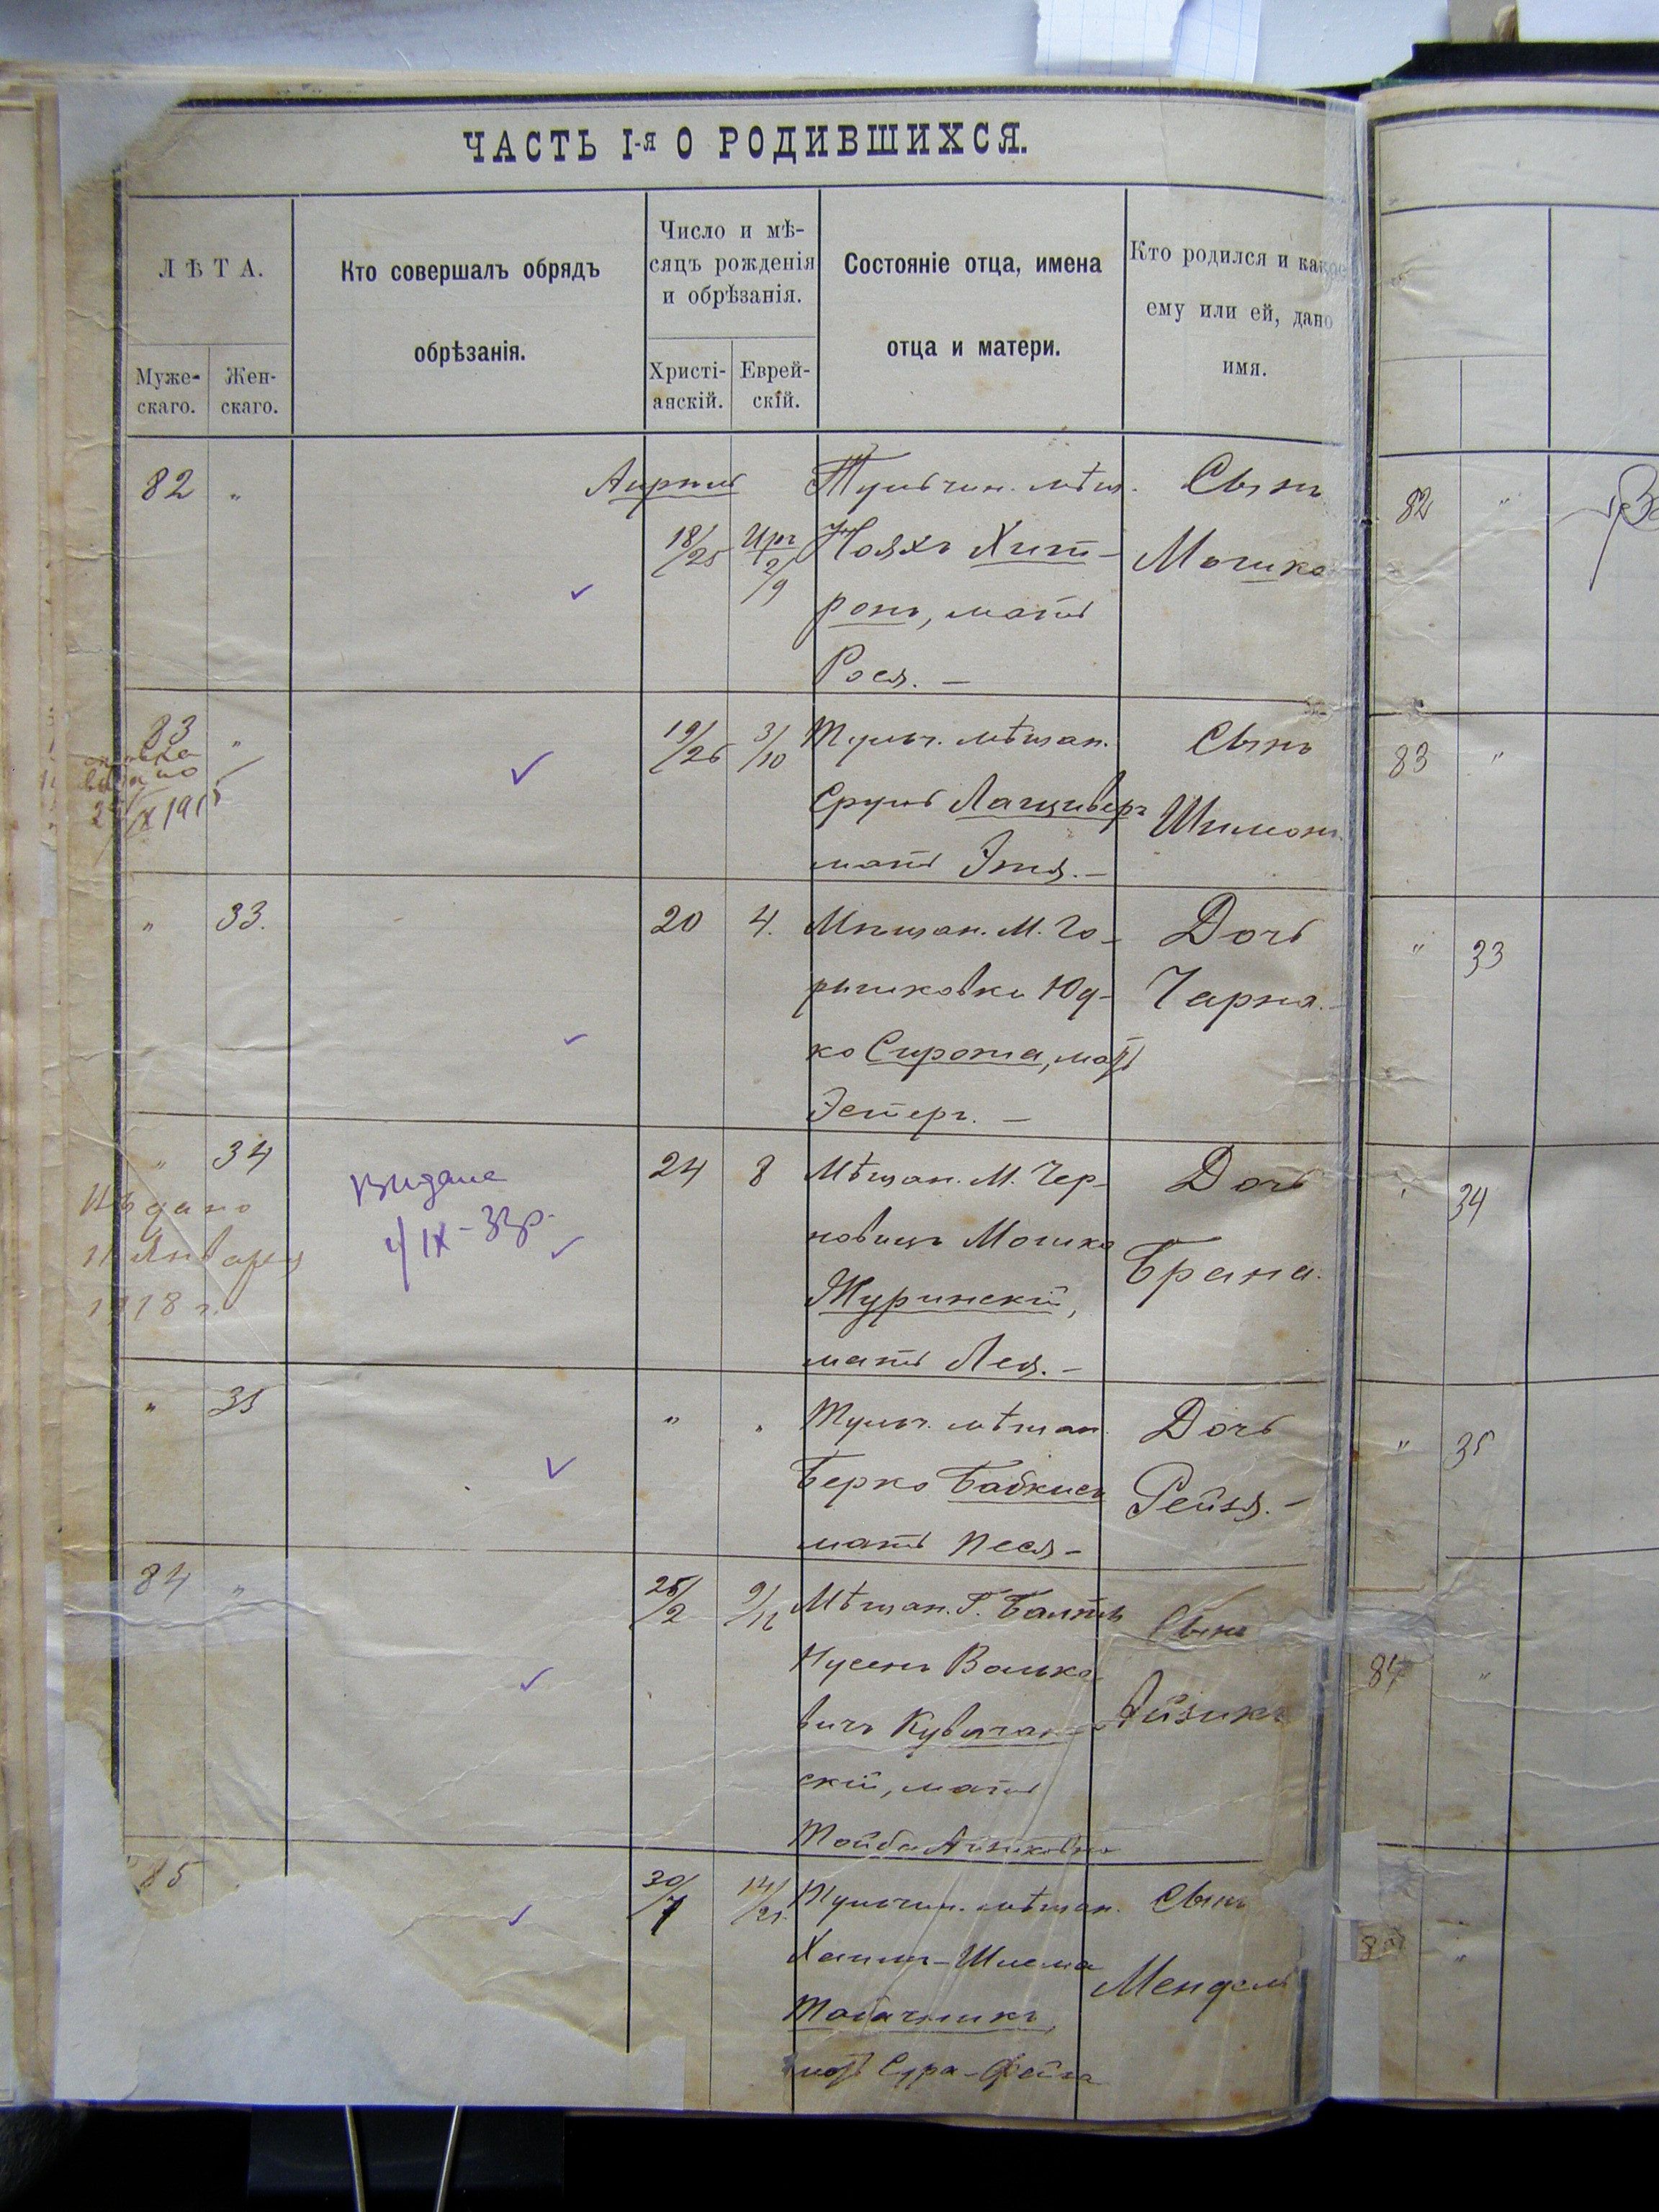 ЧАСТЬ I-я О РОДИВШИХСЯ.
ЛѢТА.
Муже-
скаго.
Жен-
скаго.
Кто совершалъ обрядъ
обрѣзанія.
Число и мѣ-
сяцъ рожденія
и обрѣзанія.
Христі-
анскій.
Еврей-
скій.
Состояніе отца, имена
отца и матери.
Кто родился и какое
ему или ей, дано
имя.
82 "
Апрель
18/25
Иръ 2/9
Тульчин. мѣщ.
Нояхъ Хит-
ронъ, мать
Рося. –
Сынъ
Мошко
83 "
19/26 3/10
Тульч. мѣщан.
Сруль Лацивер
мать Этя. –
Сынъ
Шимонъ.
" 33.
20 4.
Мѣщан. М. Го-
рышковки Юд-
ко Сирота, мать
Эстеръ. –
Дочь
Чарна. –
" 34
Видано
11 Января
1918 г.
Видане
4/IX-33р.
24 8
Мѣщан. М. Чер-
новицъ Мошко
Журинскій,
мать Лея. –
Дочь
Брана.
" 35
" "
Тульч. мѣщан.
Берко Бабкисъ
мать Песя –
Дочь
Рейзя. –
84 "
25/2 9/16
Мѣщан. Г. Балты
Нусенъ Волько-
вичъ
скій, мать
Тойба Айзиковна
Сынъ
Айзикъ
85
30/7 14/21.
Тульчин. мѣщан.
Хаимъ-Шлема
Табачникъ,
мать Сура-Фейга
Сынъ
Мендель
82 "
83 "
" 33
" 34
" 35
84 "
85 "